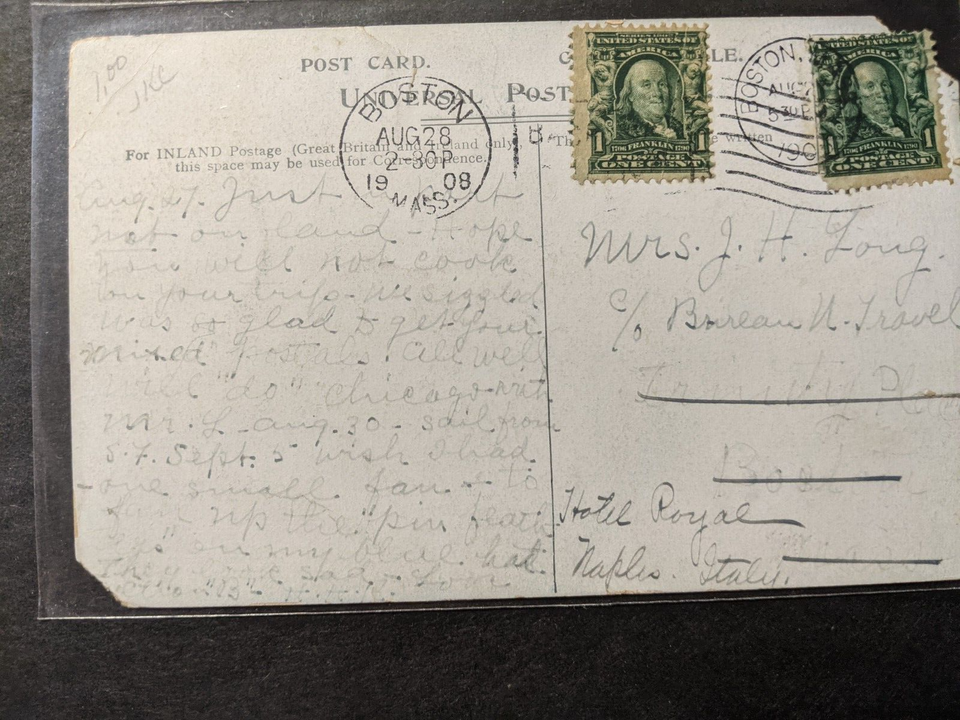 1,00
POST CARD.
UNIVERSAL POST
BOSTON
AUG 28
2-30 P
19 08
MASS.
SERIES 1902
UNITED STATES OF
AMERICA
1 1
1706 FRANKLIN 1790
POSTAGE
ONE CENT
BOSTON,
AUG
5 30 P
190
UNITED STATES OF
AMERICA
1 1
1706 FRANKLIN 1790
POSTAGE
ONE CENT
For INLAND Postage (Great Britain and Ireland only,
this space may be used for Correspondence.
written
Aug. 27. Just
not on land - Hope
you will not cook
on your trip. We giggled
Was so glad to get your
mixed postals. All well
Will "do" Chicago with
Mr. L - Aug. 30 - sail from
S.F. Sept. 5 wish I had
- one small fan - to
up the "pin feath
" on my blue hat
They look sad -
Mrs. J. H. Long.
c/o Bureau U. Travel
Trinity Place
Boston
Hotel Royal
Naples. Italy.